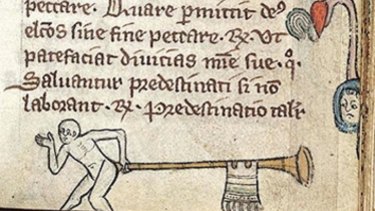 peccare. Quare permittit deꝰ
elcōs sine fine peccare. ꝶ. Vt
patefaciat divicias mīe sue. q̊.
Saluantur predestinati si nō
laborant. ꝶ. Predestinatio tali